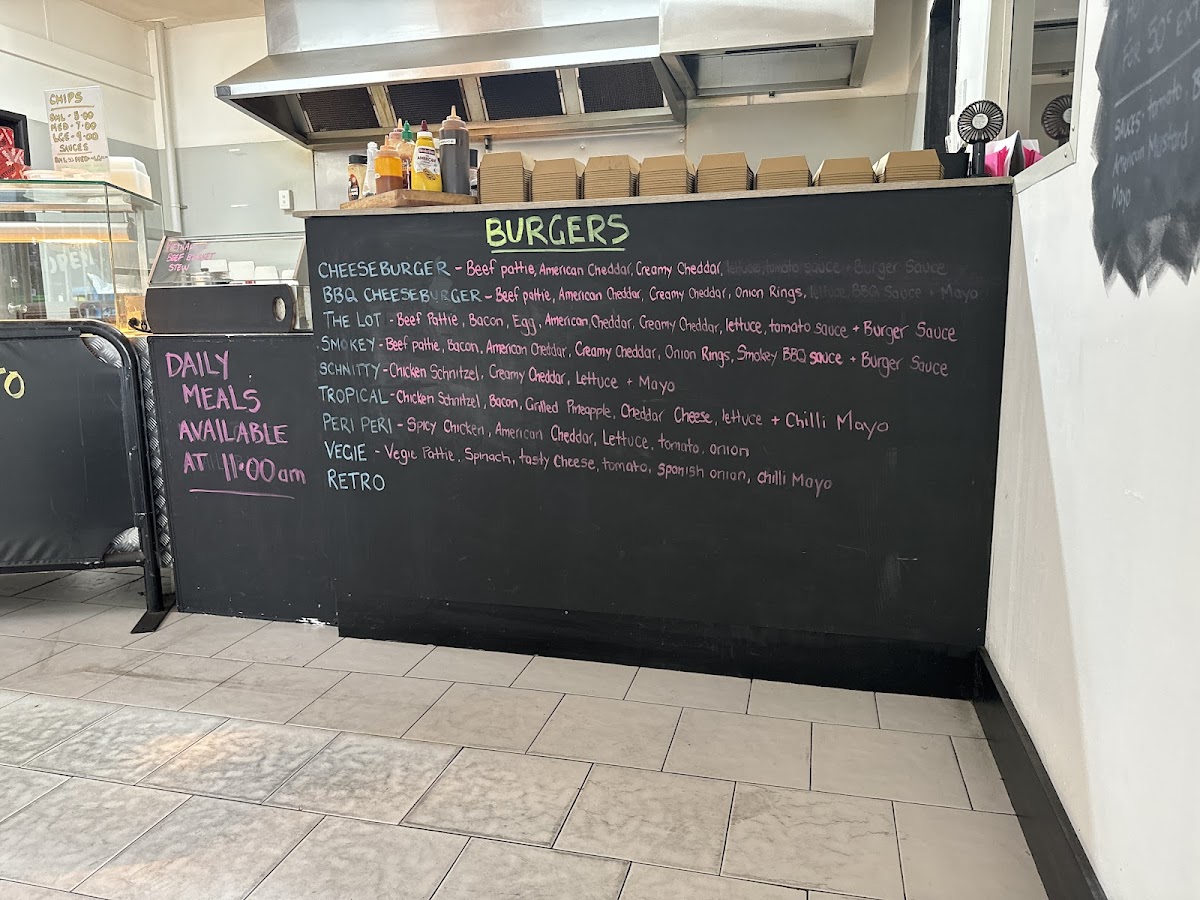 CHIPS
SML - 5.00
MED - 7.00
LGE - 9.00
SAUCES
BEEF
STEW
OPEN
TO
DAILY
MEALS
AVAILABLE
AT 11.00am
BURGERS
CHEESEBURGER - Beef pattie, American Cheddar, Creamy Cheddar, lettuce, tomato sauce + Burger Sauce
BBQ CHEESEBURGER - Beef pattie, American Cheddar, Creamy Cheddar, Onion Rings, lettuce, BBQ Sauce + Mayo
THE LOT - Beef Pattie, Bacon, Egg, American Cheddar, Creamy Cheddar, lettuce, tomato sauce + Burger Sauce
SMOKEY - Beef pattie, Bacon, American Cheddar, Creamy Cheddar, Onion Rings, Smokey BBQ sauce + Burger Sauce
SCHNITTY - Chicken Schnitzel, Creamy Cheddar, Lettuce + Mayo
TROPICAL - Chicken Schnitzel, Bacon, Grilled Pineapple, Cheddar Cheese, lettuce + Chilli Mayo
PERI PERI - Spicy Chicken, American Cheddar, Lettuce, tomato, onion
VEGIE - Vegie Pattie, Spinach, tasty Cheese, tomato, Spanish onion, chilli Mayo
RETRO
FOR 50c
SAUCES - tomato,
American Mustard
Mayo